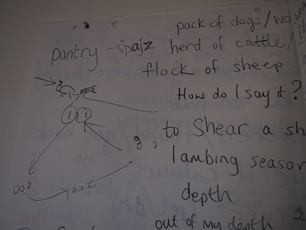 pack of dogs/wo
pantry - špajz herd of cattle/
flock of sheep
How do I say it?
to Shear a sh
lambing season
depth
out of my depth